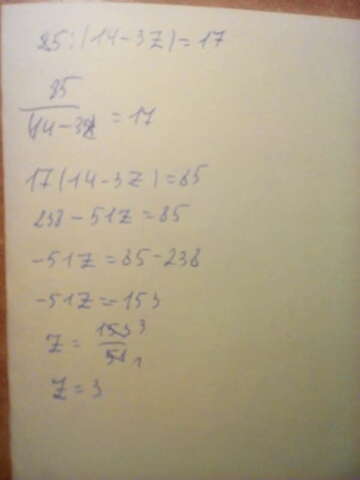 85:(14-3Z)=17
85
(14-3Z = 17
17(14-3Z)=85
238-51Z=85
-51Z=85-238
-51Z=-153
Z= 153 3
51 1
Z=3